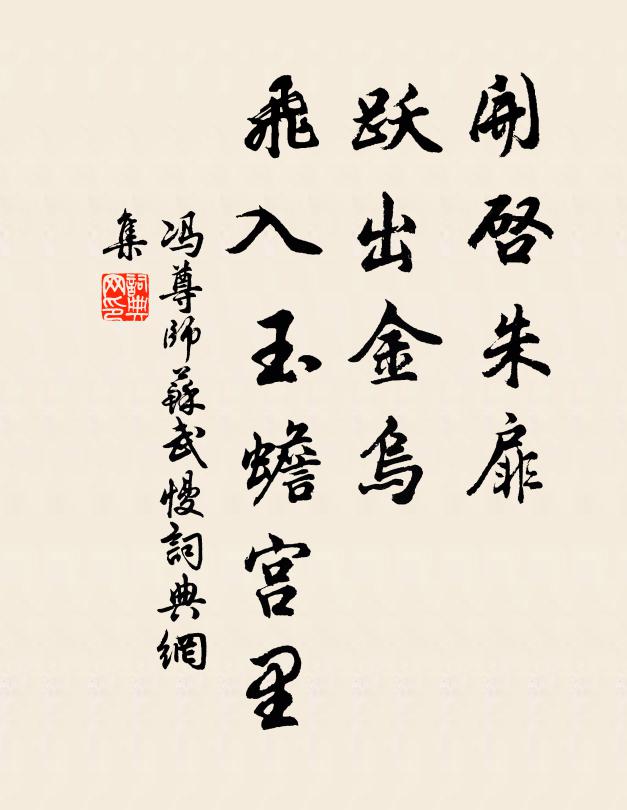 開啓朱扉
跃出金烏
飛入玉蟾宫里
冯尊師蘇武慢詞典網
集
詞典
网印